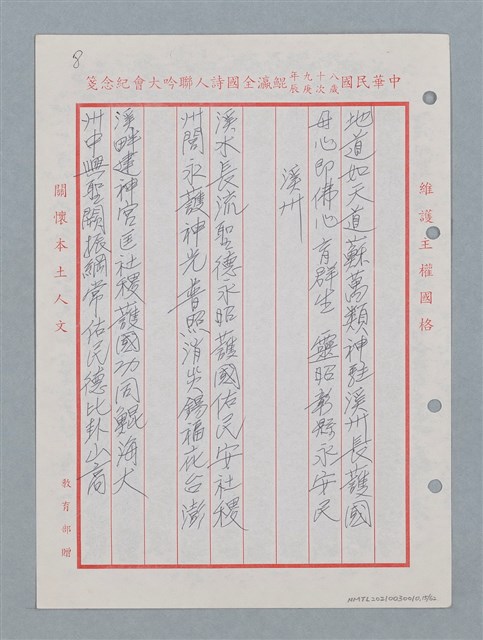 8
中華民國八十九年歲次庚辰鯤瀛全國詩人聯吟大會紀念箋
維護主權國格
地道如天道蘇萬類神駐溪州長護國
母心即佛心育群生 靈昭彰縣永安民
溪州
溪水長流聖德永昭護國佑民安社稷
州閭永護神光普照消災錫福庇台澎
溪畔建神宮匡社稷護國功同鯤海大
州中興聖闕振綱常佑民德比卦山高
關懷本土人文
教育部贈